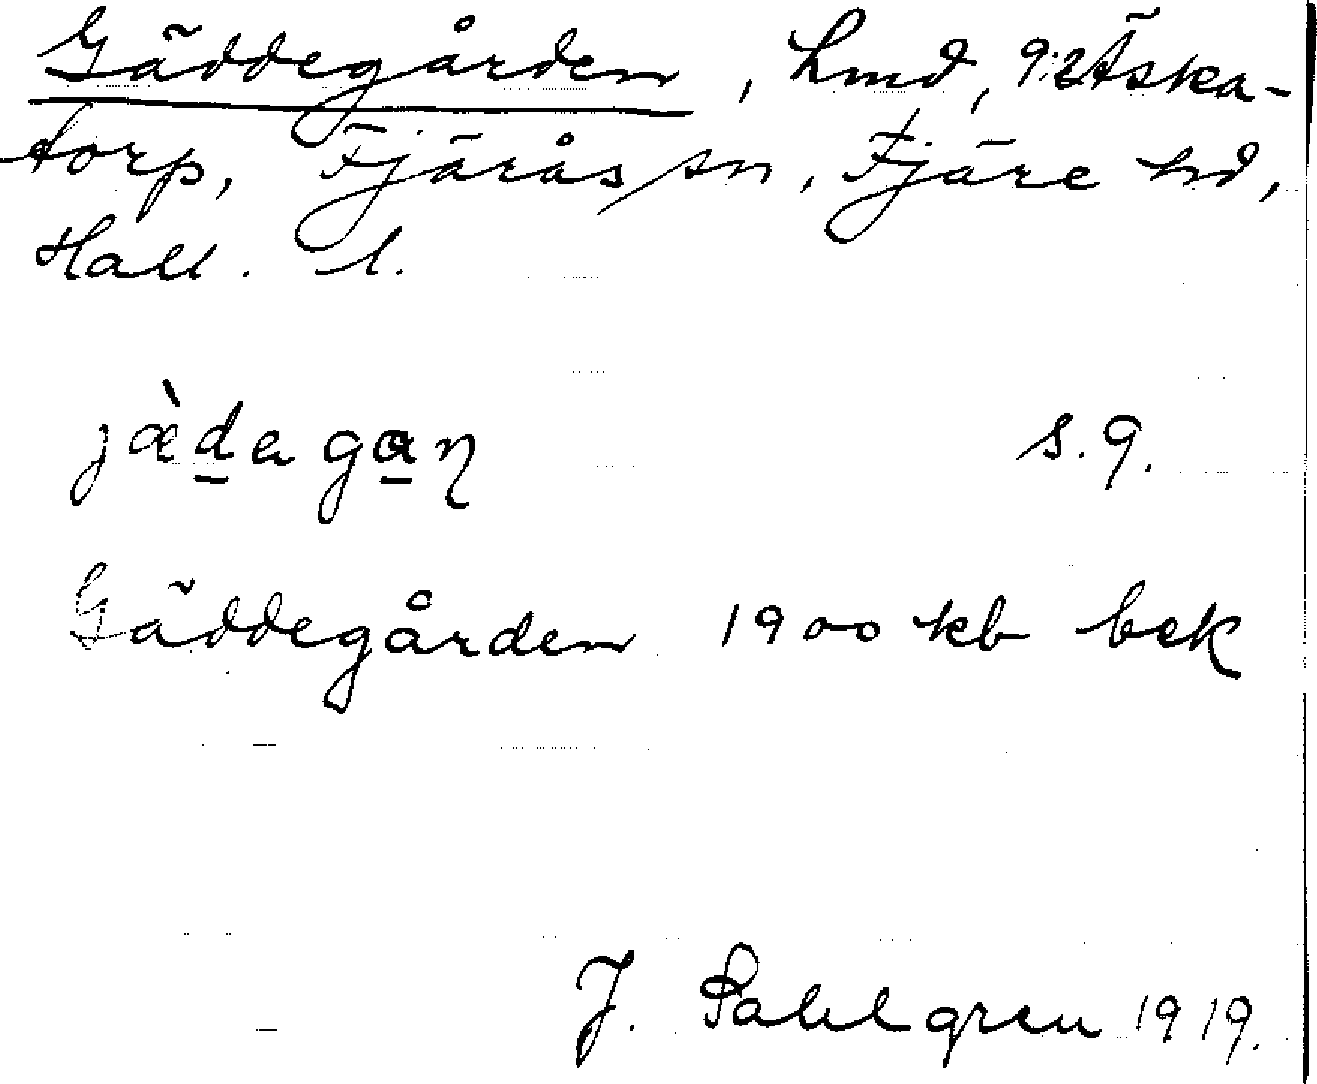 Gäddegården, hmd, 9:2 Äska-
torp, Fjärås sn, Fjäre hd,
Hall. l.
jæ̀dagaɳ s.g.
Gäddegården 1900 kb bek
J. Sahlgren 1919.